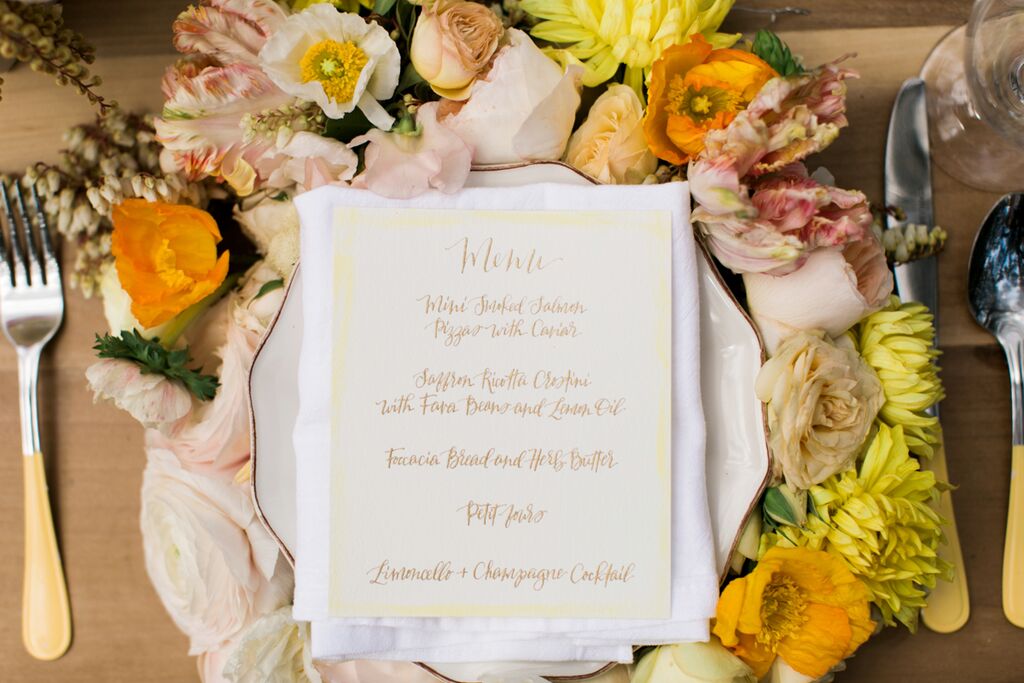 Menu
Mini Smoked Salmon
Pizzas with Caviar
Saffron Ricotta Crostini
with Fava Beans and Lemon Oil
Foccacia Bread and Herb Butter
Petit Fours
Limoncello + Champagne Cocktail